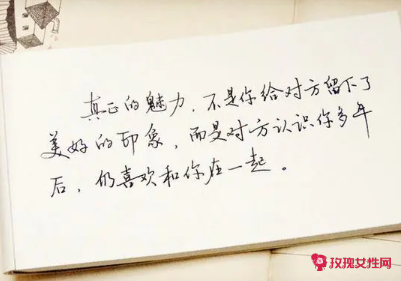 真正的魅力,不是你给对方留下了
美好的印象,而是对方认识你多年
后,仍喜欢和你在一起。
玫瑰女性网